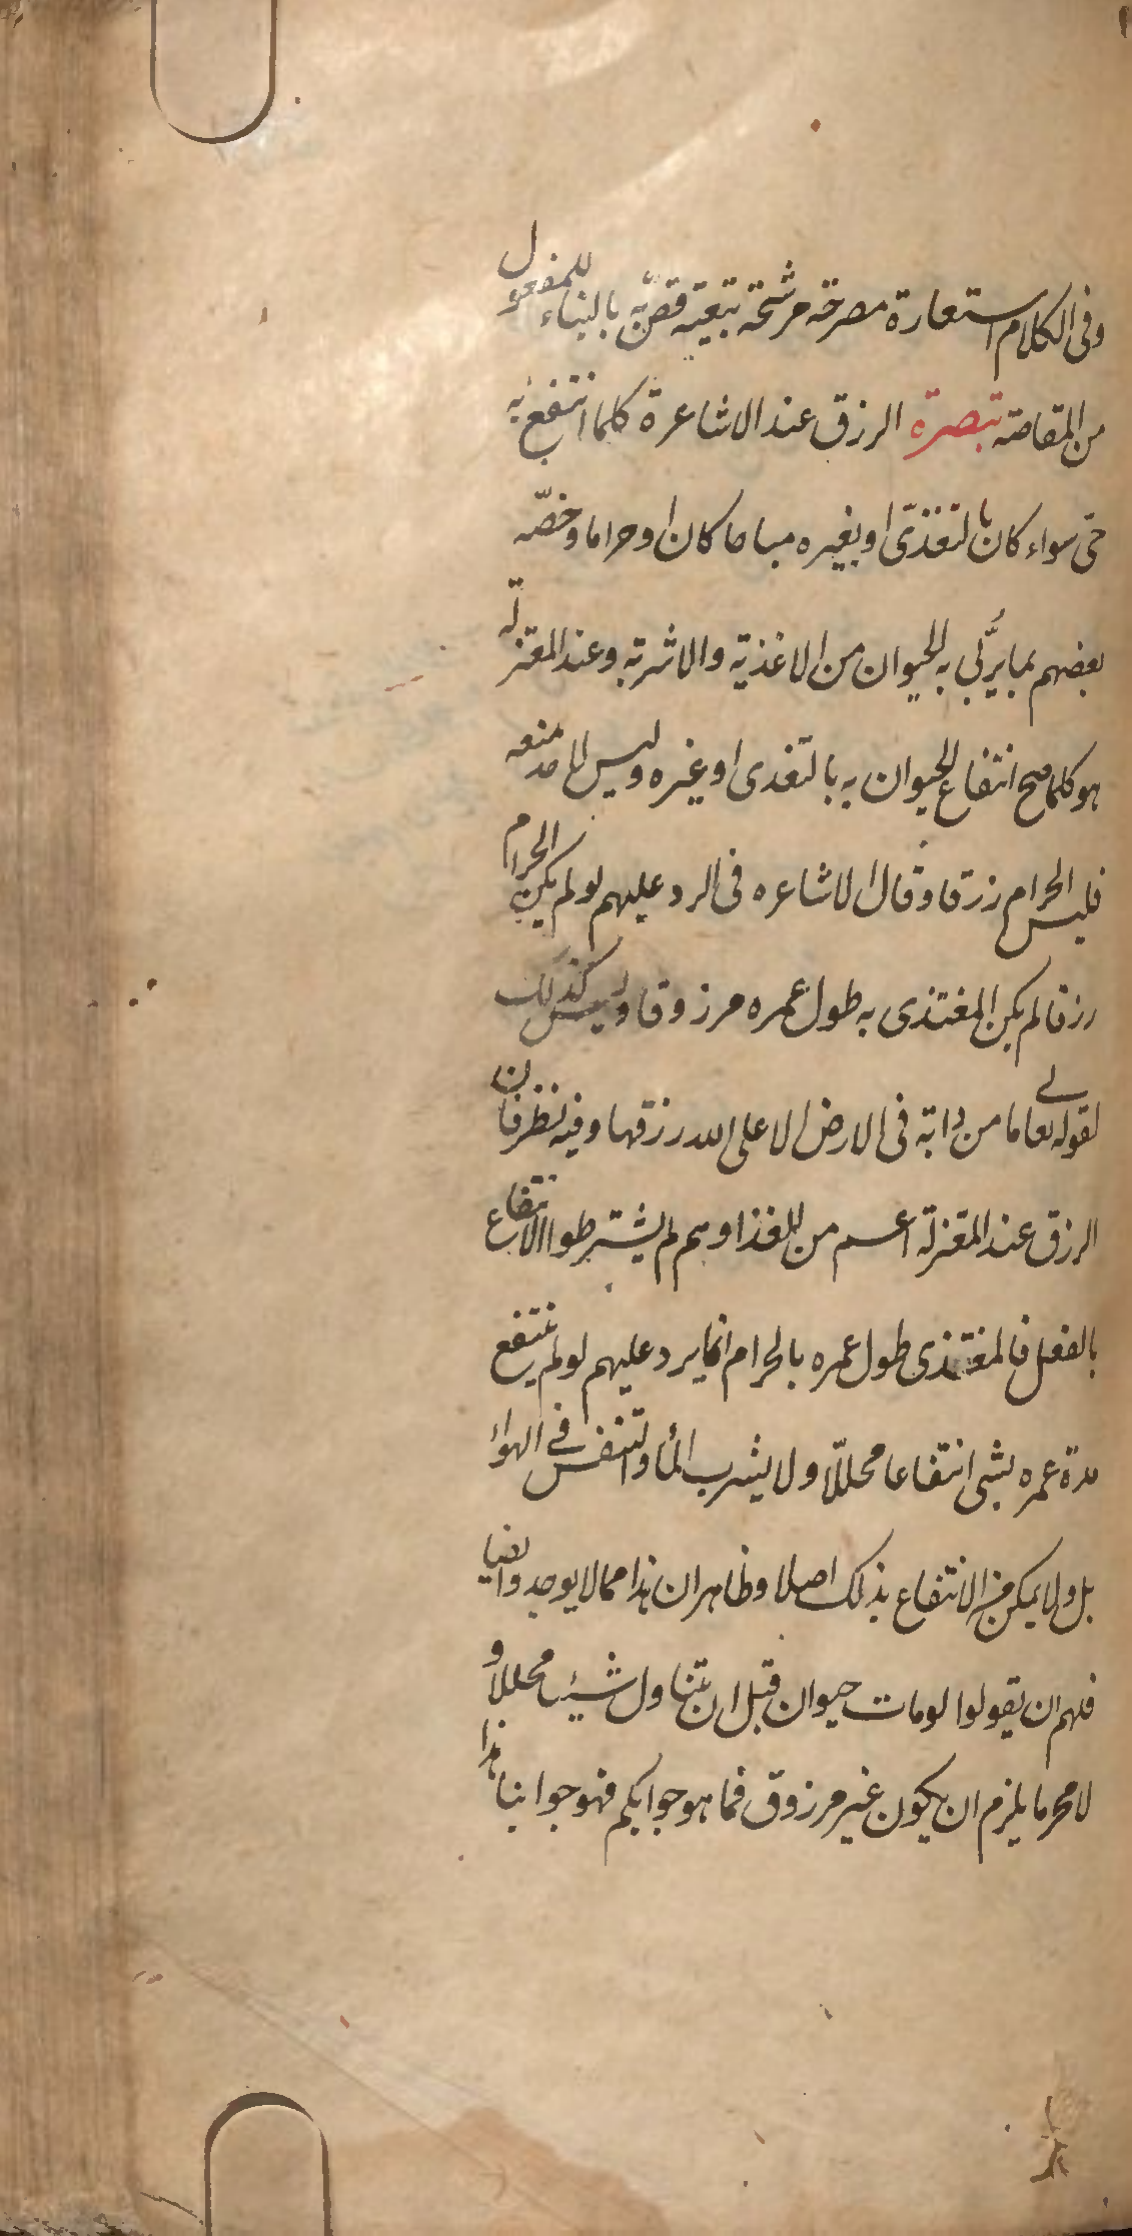 وفى الكلام استعارة مصرحة مرشحة تبعية قصّ به بالبناء للمفعول
من المقاصة تبصرة الرزق عند الاشاعرة كلما انتفع به
حى سواء كان بالتغذى او بغيره مباحا كان او حراما وخصّه
بعضهم بما يربّى به الحيوان من الاغذية والاشربة وعند المعتزلة
هو كلما صح انتفاع الحيوان به بالتغذى او غيره وليس لاحد منعه
فليس الحرام رزقا وقال الاشاعره فى الرد عليهم لو لم يكن الحرام
رزقا لم يكن المغتذى به طول عمره مرزوقا وليس كذلك
لقوله تعالى ما من دابة فى الارض الا على الله رزقها وفيه نظر فان
الرزق عند المعتزلة اعم من الغذا وهم لم يشترطوا الانتفاع
بالفعل فالمغتذى طول عمره بالحرام انما يرد عليهم لو لم ينتفع
مدة عمره بشى انتفاعا محللّا ولا يشرب المأ والتنفس فى الهواء
بل ولا يمكن من الانتفاع بذلك اصلا وظاهر ان هذا مما لا يوجد وايضا
فلهم ان يقولوا لو مات حيوان قبل ان يتناول شيئا محللا و
لا محرما يلزم ان يكون غير مرزوق فما هو جوابكم فهو جوابنا هذا